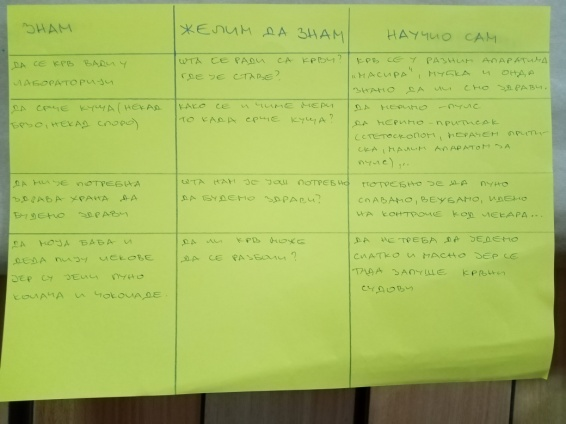 ЗНАМ
ЖЕЛИМ ДА ЗНАМ
НАУЧИО САМ
ДА СЕ КРВ ВАДИ У
ЛАБОРАТОРИЈИ
ШТА СЕ РАДИ СА КРВИ?
ГДЕ ЈЕ СТАВЕ?
КРВ СЕ У РАЗНИМ АПАРАТИМА
„МАСИРА“, МУЋКА И ОНДА
ЗНАМО ДА ЛИ СМО ЗДРАВИ.
ДА СРЦЕ КУЦА (НЕКАД
БРЗО, НЕКАД СПОРО)
КАКО СЕ И ЧИМЕ МЕРИ
ТО КАДА СРЦЕ КУЦА?
ДА МЕРИМО - ПУЛС
ДА МЕРИМО - ПРИТИСАК
(СТЕТОСКОПОМ, МЕРАЧЕМ ПРИТИ-
СКА, МАЛИМ АПАРАТОМ ЗА
ПУЛС)...
ДА МИ ЈЕ ПОТРЕБНА
ЗДРАВА ХРАНА ДА
БУДЕМО ЗДРАВИ
ШТА НАМ ЈЕ ЈОШ ПОТРЕБНО
ДА БУДЕМО ЗДРАВИ?
ПОТРЕБНО ЈЕ ДА ПУНО
СПАВАМО, ВЕЖБАМО, ИДЕМО
НА КОНТРОЛЕ КОД ЛЕКАРА...
ДА МОЈА БАБА И
ДЕДА ПИЈУ ЛЕКОВЕ
ЈЕР СУ ЈЕЛИ ПУНО
КОЛАЧА И ЧОКОЛАДЕ
ДА ЛИ КРВ МОЖЕ
ДА СЕ РАЗБОЛИ?
ДА НЕ ТРЕБА ДА ЈЕДЕМО
СЛАТКО И МАСНО ЈЕР СЕ
ТАДА ЗАПУШЕ КРВНИ
СУДОВИ